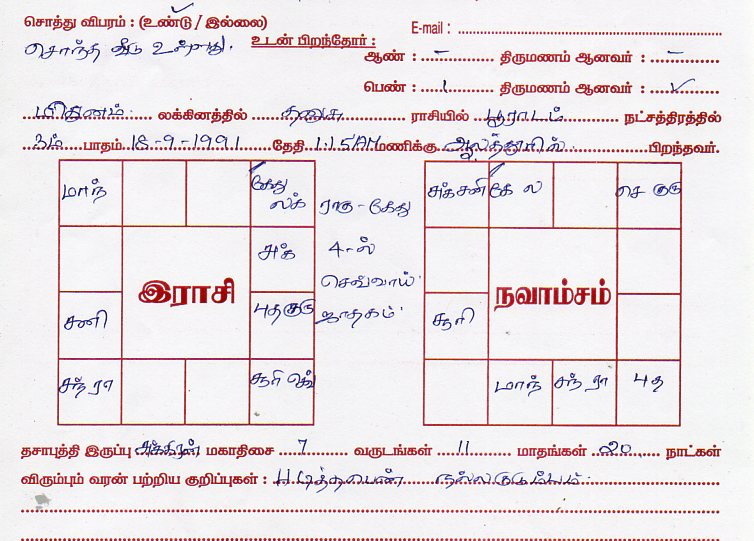 சொத்து விபரம் : (உண்டு / இல்லை)
E-mail :
சொந்த வீடு உள்ளது.
உடன் பிறந்தோர் :
ஆண் : – திருமணம் ஆனவர் : –
பெண் : 1 திருமணம் ஆனவர் :
மிதுனம் லக்கினத்தில் தனுசு ராசியில் பூராடம் நட்சத்திரத்தில்
3ம் பாதம் 18-9-1991 தேதி 1.15AM மணிக்கு ஆலத்தூரில் பிறந்தவர்.
மாந்
கேது லக்
சுக்
சனி
புத குரு
சந் ரா
சூரி செவ்
இராசி
ராகு - கேது
4-ல்
செவ்வாய்
ஜாதகம்
சுக் சனி
கே ல
செ குரு
சூரி
மாந்
சந் ரா
புத
நவாம்சம்
தசாபுத்தி இருப்பு சுக்கிரன் மகாதிசை 7 வருடங்கள் 11 மாதங்கள் 20 நாட்கள்
விரும்பும் வரன் பற்றிய குறிப்புகள் : படித்தபெண் நல்லகுடும்பம்.